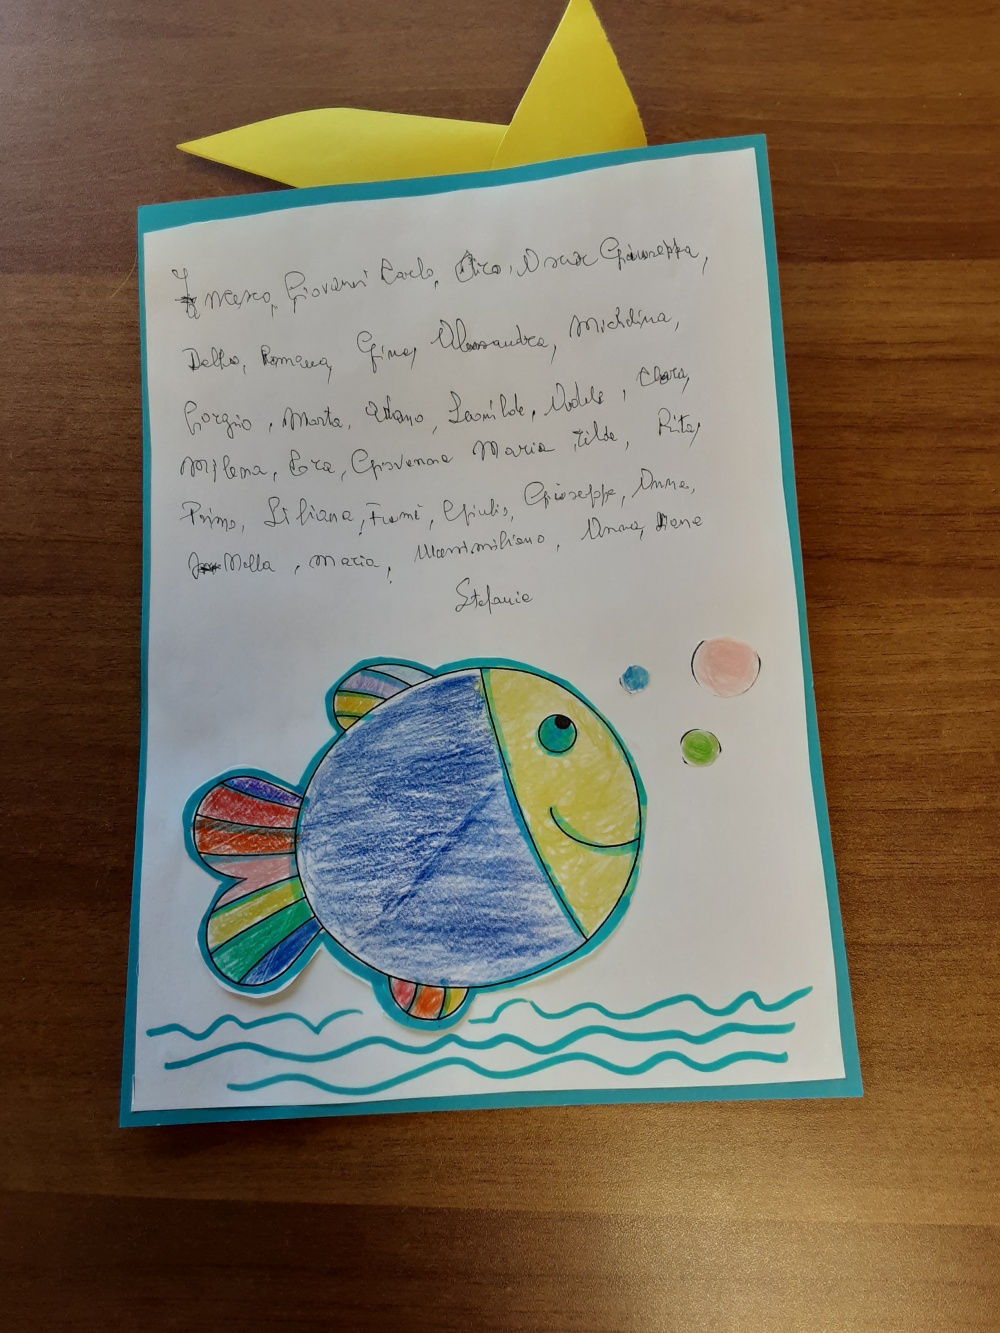 Giovanni Carlo, Dirce, Giuseppa,
Delho, Romana, Gina, Alessandra, Michelina,
Giorgio, Marta, Adano, Leonilde, Adele, Clara,
Milena, Era, Giovanna Maria Tilde, Rita,
Primo, Liliana, Fumi, Giulio, Giuseppe, Anna,
Nella, Maria, Massimiliano, Anna, Liana
Stefania